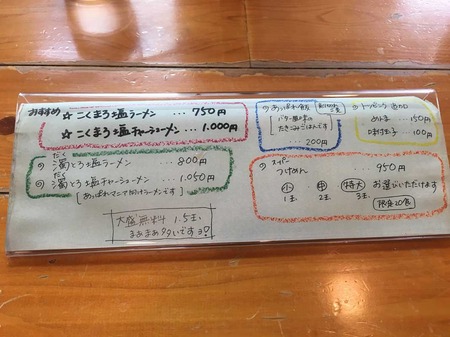 おすすめ
☆ こくまろ塩ラーメン ・・・ 750円
☆ こくまろ塩チャーシューメン ・・・ 1,000円
だく
◎ 濁とろ塩ラーメン ・・・ 800円
だく
◎ 濁とろ塩チャーシューメン ・・・ 1,050円
[あっぱれマニア向けラーメンです]
大盛無料 1.5玉
まあまあ多いですョ!
◎ あっぱれ飯
バター風味の
たきこみごはんです
・・・ 200円
◎ トッピング 各のり
めんま ・・・ 150円
味付玉子 ・・・ 100円
◎ スーパー
つけめん ・・・ 950円
小 中 特大 お選びいただけます
1玉 2玉 3玉 限定20食